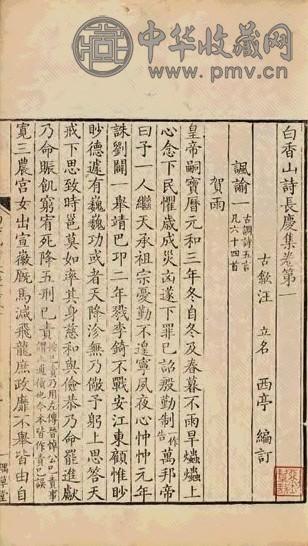 中华收藏网
www.pmv.cn
白香山詩長慶集卷第一
古歙汪 立名 西亭 編訂
諷諭一 古調詩五言 凡六十四首
賀雨
皇帝嗣寶曆元和三年冬自冬及春暮不雨旱爞爞上
心念下民懼歲成災凶遂下罪已詔殷勤制 作告 萬邦帝
曰予一人繼天承祖宗憂勤不遑寧夙夜心忡忡元年
誅劉闢一舉靖巴卭二年戮李錡不戰安江東顧惟眇
眇德遽有巍巍功或者天降沴無乃儆予躬上思答天
戒下思致時邕莫如率其身慈和與儉恭乃命罷進獻
乃命賑飢窮宥死降五刑已責
寛三農宮女出宣徽厩馬減飛龍庶政靡不舉皆由自
草堂